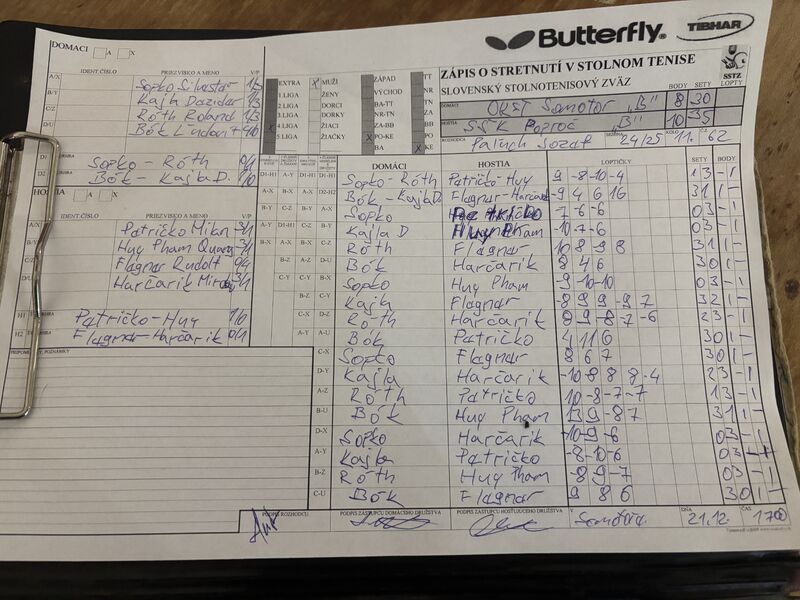 Butterfly
TIBHAR
DOMÁCI A X
IDENT.ČÍSLO PRIEZVISKO A MENO V/P
A/X Sopko Silvester 1/3
B/Y Kajla Dezider 1/3
C/Z Róth Roland 1/3
Bók Ľudovít 4/0
D1 Sopko - Róth 0/1
D2 Bók - Kajla D. 1/0
HOSTIA A X
IDENT.ČÍSLO PRIEZVISKO A MENO V/P
A/X Patričko Milan 3/1
B/Y Huy Pham Quang 3/1
C/Z Flagnar Rudolf 0/4
Harčarik Miroslav 3/1
H1 Patričko - Huy 1/0
H2 Flagnar - Harčarik 0/1
PRIPOMIENKY, POZNÁMKY
EXTRA X MUŽI ZÁPAD TT
1.LIGA ŽENY VÝCHOD NR
2.LIGA DORCI BA-TT TN
3.LIGA DORKY NR-TN ZA
X 4.LIGA ŽIACI ZA-BB BB
5.LIGA ŽIAČKY X PO-KE PO
BA X KE
ZÁPIS O STRETNUTÍ V STOLNOM TENISE
SLOVENSKÝ STOLNOTENISOVÝ ZVÄZ
SSTZ
BODY SETY LOPTY
DOMÁCI OREŠ Somotor "B" 8 30
HOSTIA SŠK Poproč "B" 10 35
ROZHODCA Palnch Jozef SEZÓNA 24/25 KOLO 11. Č. 62
DOMÁCI HOSTIA LOPTIČKY SETY BODY
Sopko - Róth Patričko - Huy 9 -8 -10 -4 1 3 - 1
Bók - Kajla D. Flagnar - Harčarik -9 4 6 16 3 1 1 -
Sopko Patričko -7 -6 -6 0 3 - 1
Kajla D Huy Pham -10 -7 -6 0 3 - 1
Róth Flagnar -10 8 9 8 3 1 1 -
Bók Harčarik 8 4 6 3 0 1 -
Sopko Huy Pham -9 -10 -10 0 3 - 1
Kajla Flagnar -8 9 9 -9 7 3 2 1 -
Róth Harčarik 8 9 -8 -7 -6 2 3 - 1
Bók Patričko 4 11 6 3 0 1 -
Sopko Flagnar 8 6 7 3 0 1 -
Kajla Harčarik -10 -8 8 8 -4 2 3 - 1
Róth Patričko 10 -8 -7 -7 1 3 - 1
Bók Huy Pham 13 9 -8 7 3 1 1 -
Sopko Harčarik -10 -9 -6 0 3 - 1
Kajla Patričko -8 -10 -6 0 3 - 1
Róth Huy Pham -8 -9 -7 0 3 - 1
Bók Flagnar 9 8 6 3 0 1 -
PODPIS ROZHODCU PODPIS ZÁSTUPCU DOMÁCEHO DRUŽSTVA PODPIS ZÁSTUPCU HOSŤUJÚCEHO DRUŽSTVA V DŇA 21.12. ČAS 17 00